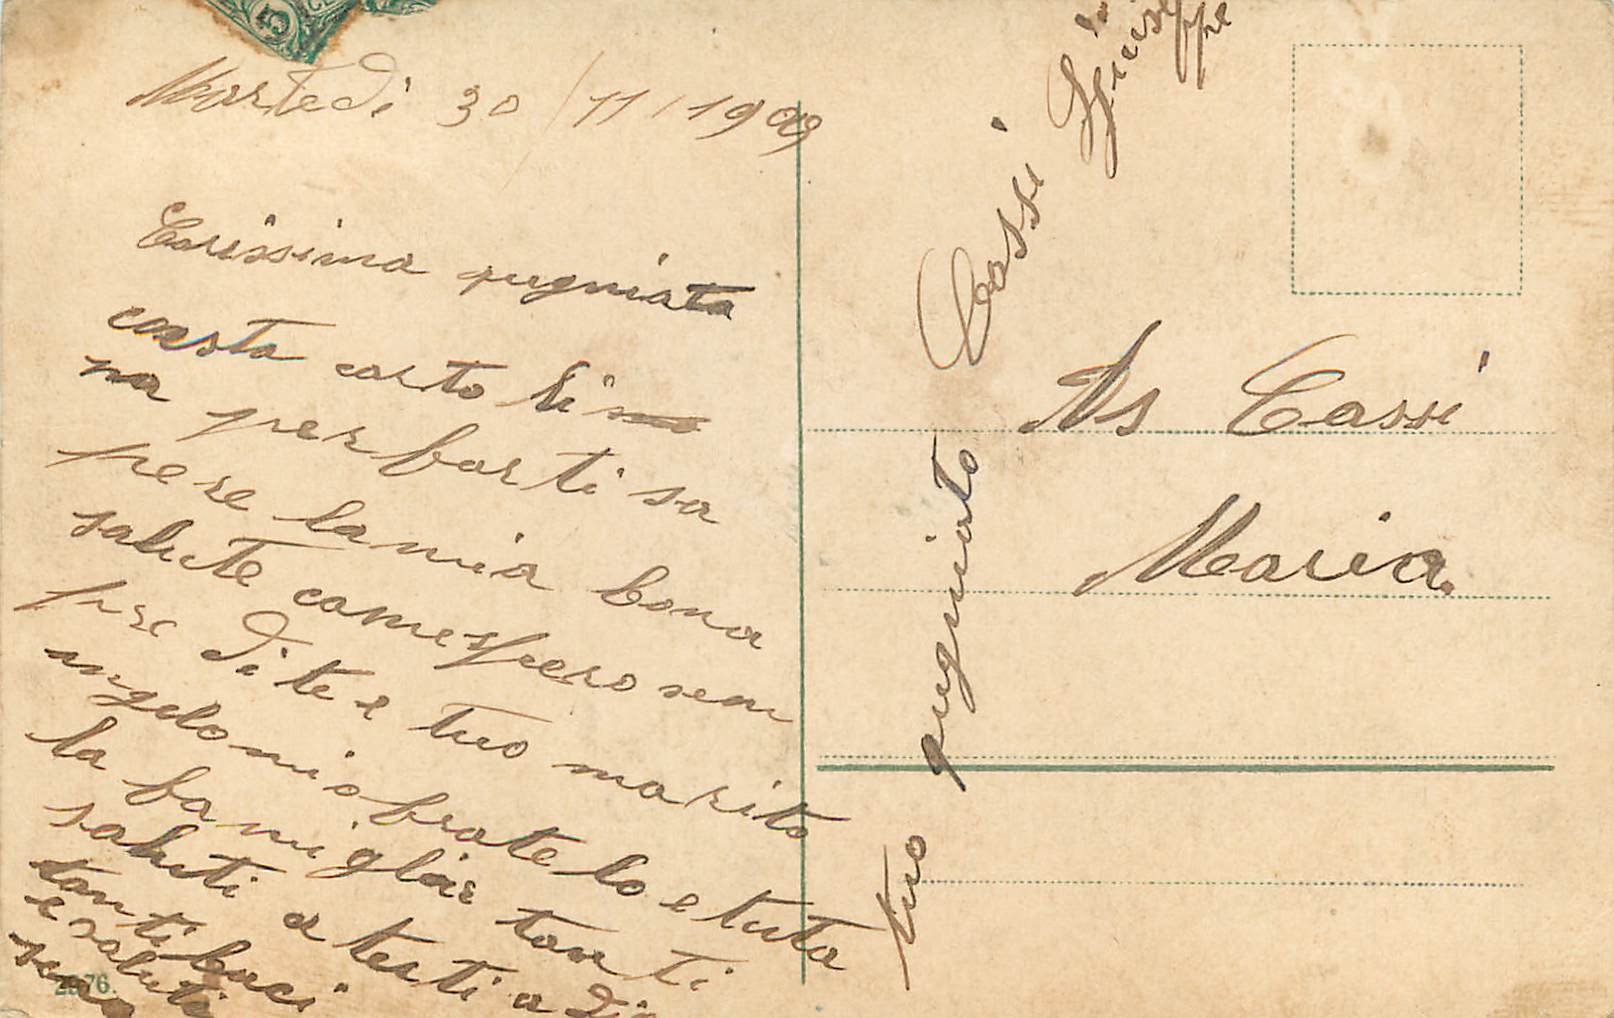 5
Martedi 30/11/1909
Carissima pugniata
cuesta carto lino
na per farti sa
pere la mia bona
salute come spero sem
pre di te e tuo marito
angelo mio fratelo e tuta
la famiglia tan ti
saluti a tuti a dio
tanti baci
e saluti
tuo pugniato Cassi Giuseppe
As Cassi
Maria
2076.